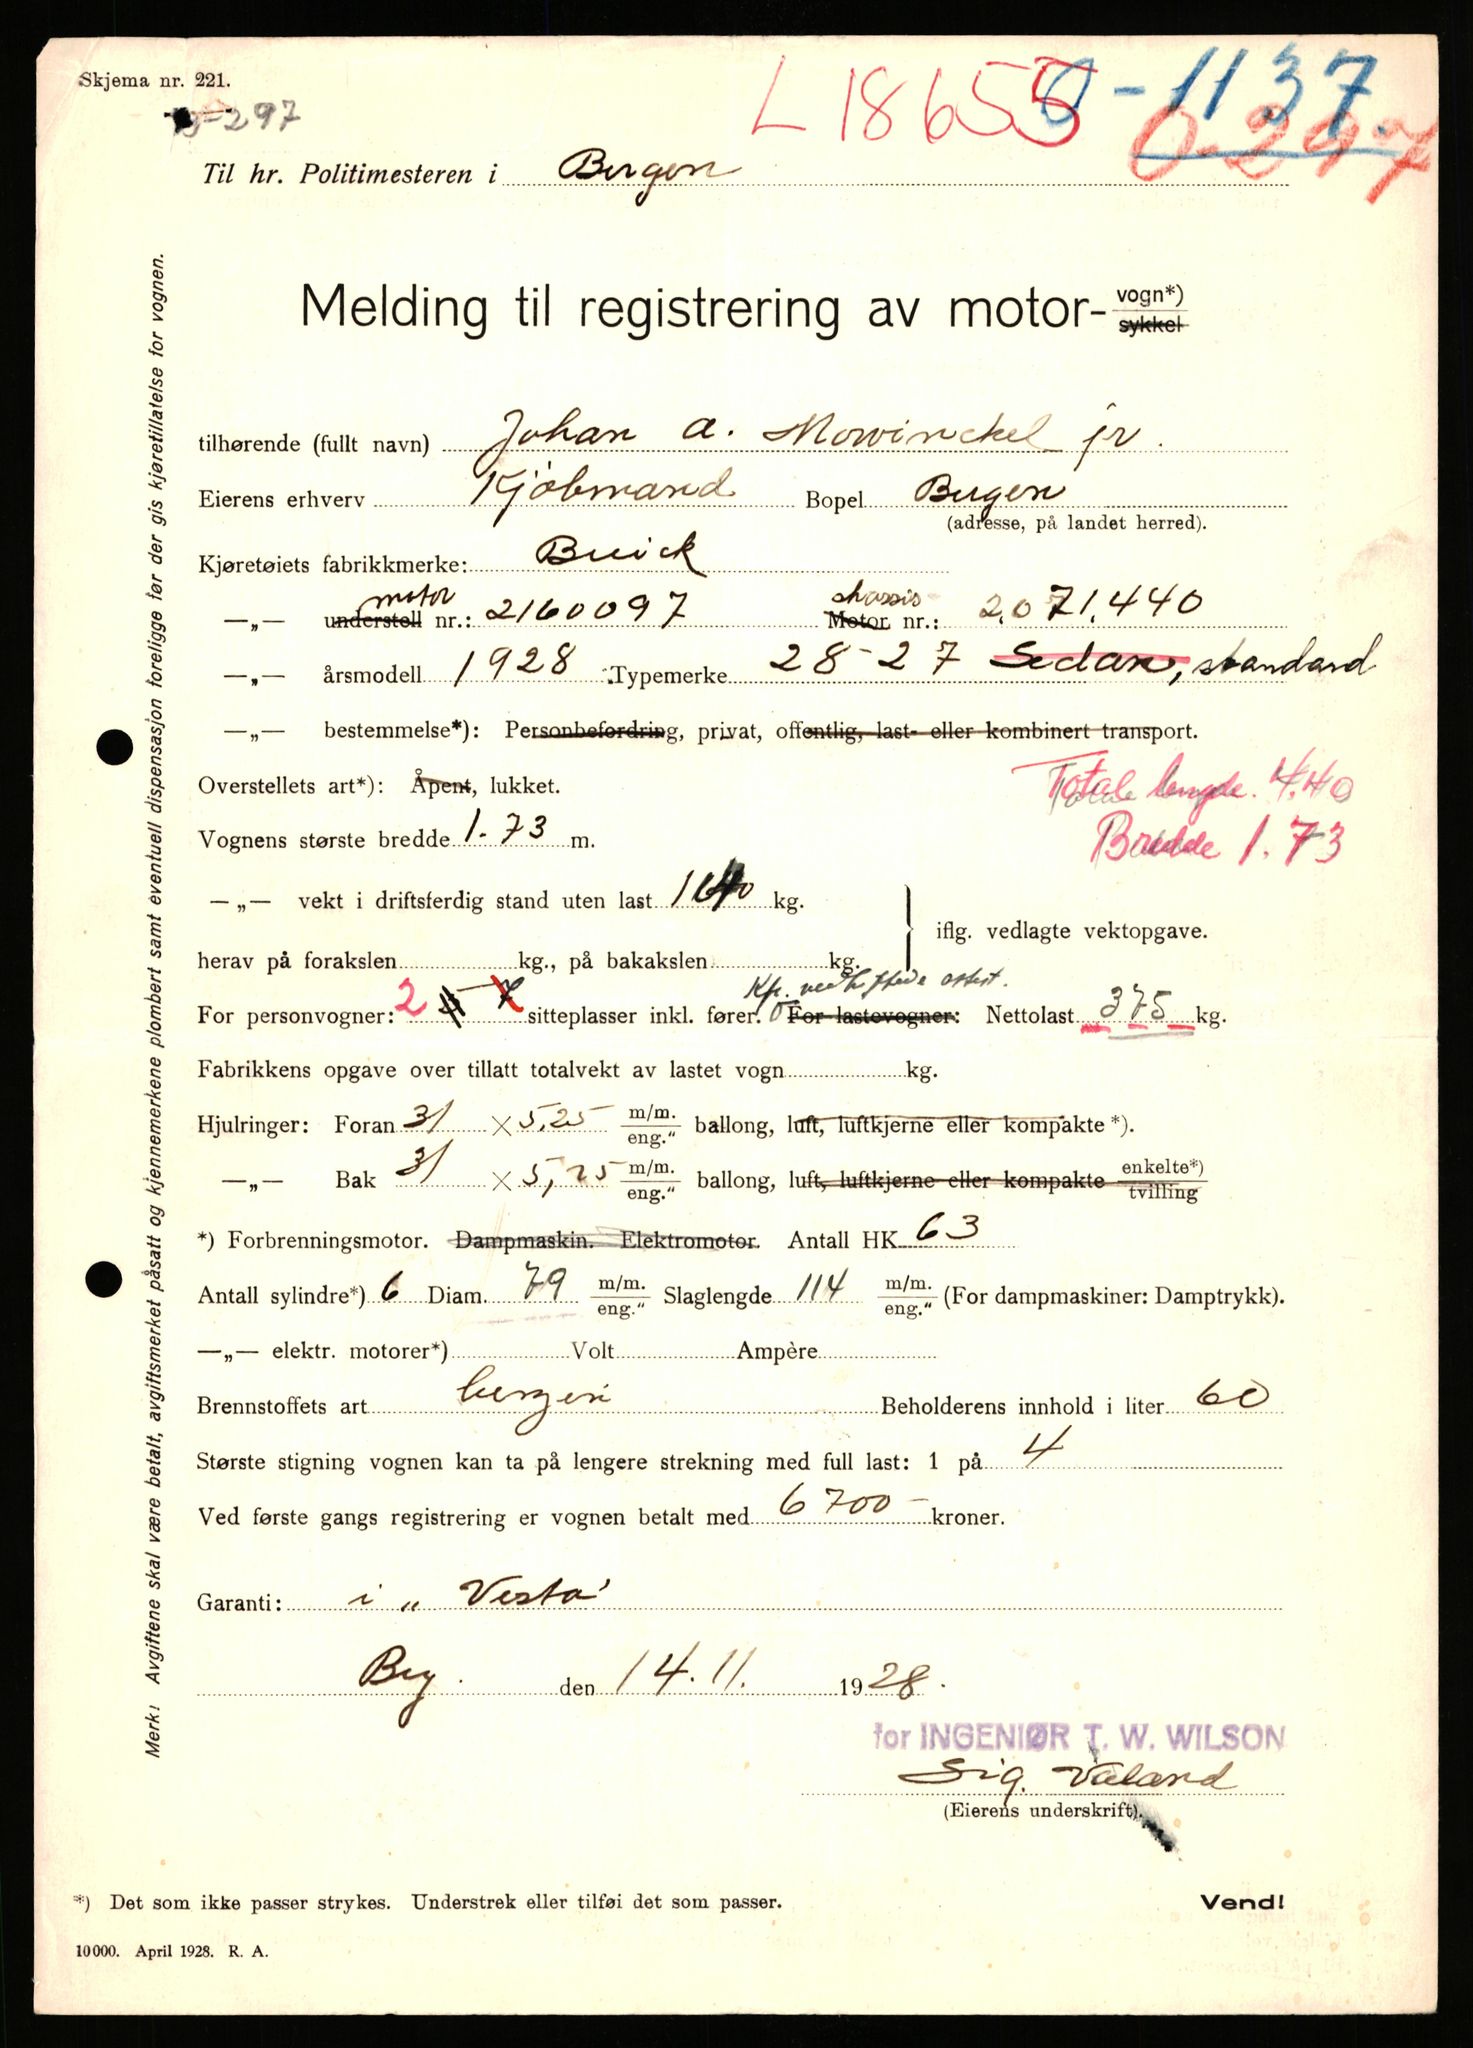 Skjema nr. 221.
L 18655 O-1137
297 O-297
Til hr. Politimesteren i Bergen
Melding til registrering av motor- vogn*) sykkel
tilhørende (fullt navn) Johan A. Mowinckel jr.
Eierens erhverv Kjøbmand Bopel Bergen
(adresse, på landet herred).
Kjøretøiets fabrikkmerke: Buick
motor chassis
—„— understell nr.: 2160097 Motor nr.: 2.071.440
—„— årsmodell 1928 Typemerke 28-27 Sedan, standard
—„— bestemmelse*): Personbefordring, privat, offentlig, last- eller kombinert transport.
Overstellets art*): Åpent, lukket.
Total lengde. 4.40
Vognens største bredde 1.73 m.
Bredde 1.73
—„— vekt i driftsferdig stand uten last kg.
iflg. vedlagte vektopgave.
herav på forakslen kg., på bakakslen kg.
Kfr. vedheftede attest.
For personvogner: 2 sitteplasser inkl. fører. For lastevogner: Nettolast 375 kg.
Fabrikkens opgave over tillatt totalvekt av lastet vogn kg.
Hjulringer: Foran 31 × 5,25 m/m. eng." ballong, luft, luftkjerne eller kompakte*).
—„— Bak 31 × 5,25 m/m. eng." ballong, luft, luftkjerne eller kompakte enkelte*) tvilling
*) Forbrenningsmotor. Dampmaskin. Elektromotor. Antall HK. 63
Antall sylindre*) 6 Diam. 79 m/m. eng." Slaglengde 114 m/m. eng." (For dampmaskiner: Damptrykk).
—„— elektr. motorer*) Volt Ampère
Brennstoffets art benzin Beholderens innhold i liter 60
Største stigning vognen kan ta på lengere strekning med full last: 1 på 4
Ved første gangs registrering er vognen betalt med 6700- kroner.
Garanti: i „Vesta"
Brg. den 14.11. 1928.
for INGENIØR T. W. WILSON
Sig. Valand
(Eierens underskrift).
*) Det som ikke passer strykes. Understrek eller tilføi det som passer.
Vend!
10000. April 1928. R. A.
Merk! Avgiftene skal være betalt, avgiftsmerket påsatt og kjennemerkene plombert samt eventuell dispensasjon foreligge før der gis kjøretillatelse for vognen.